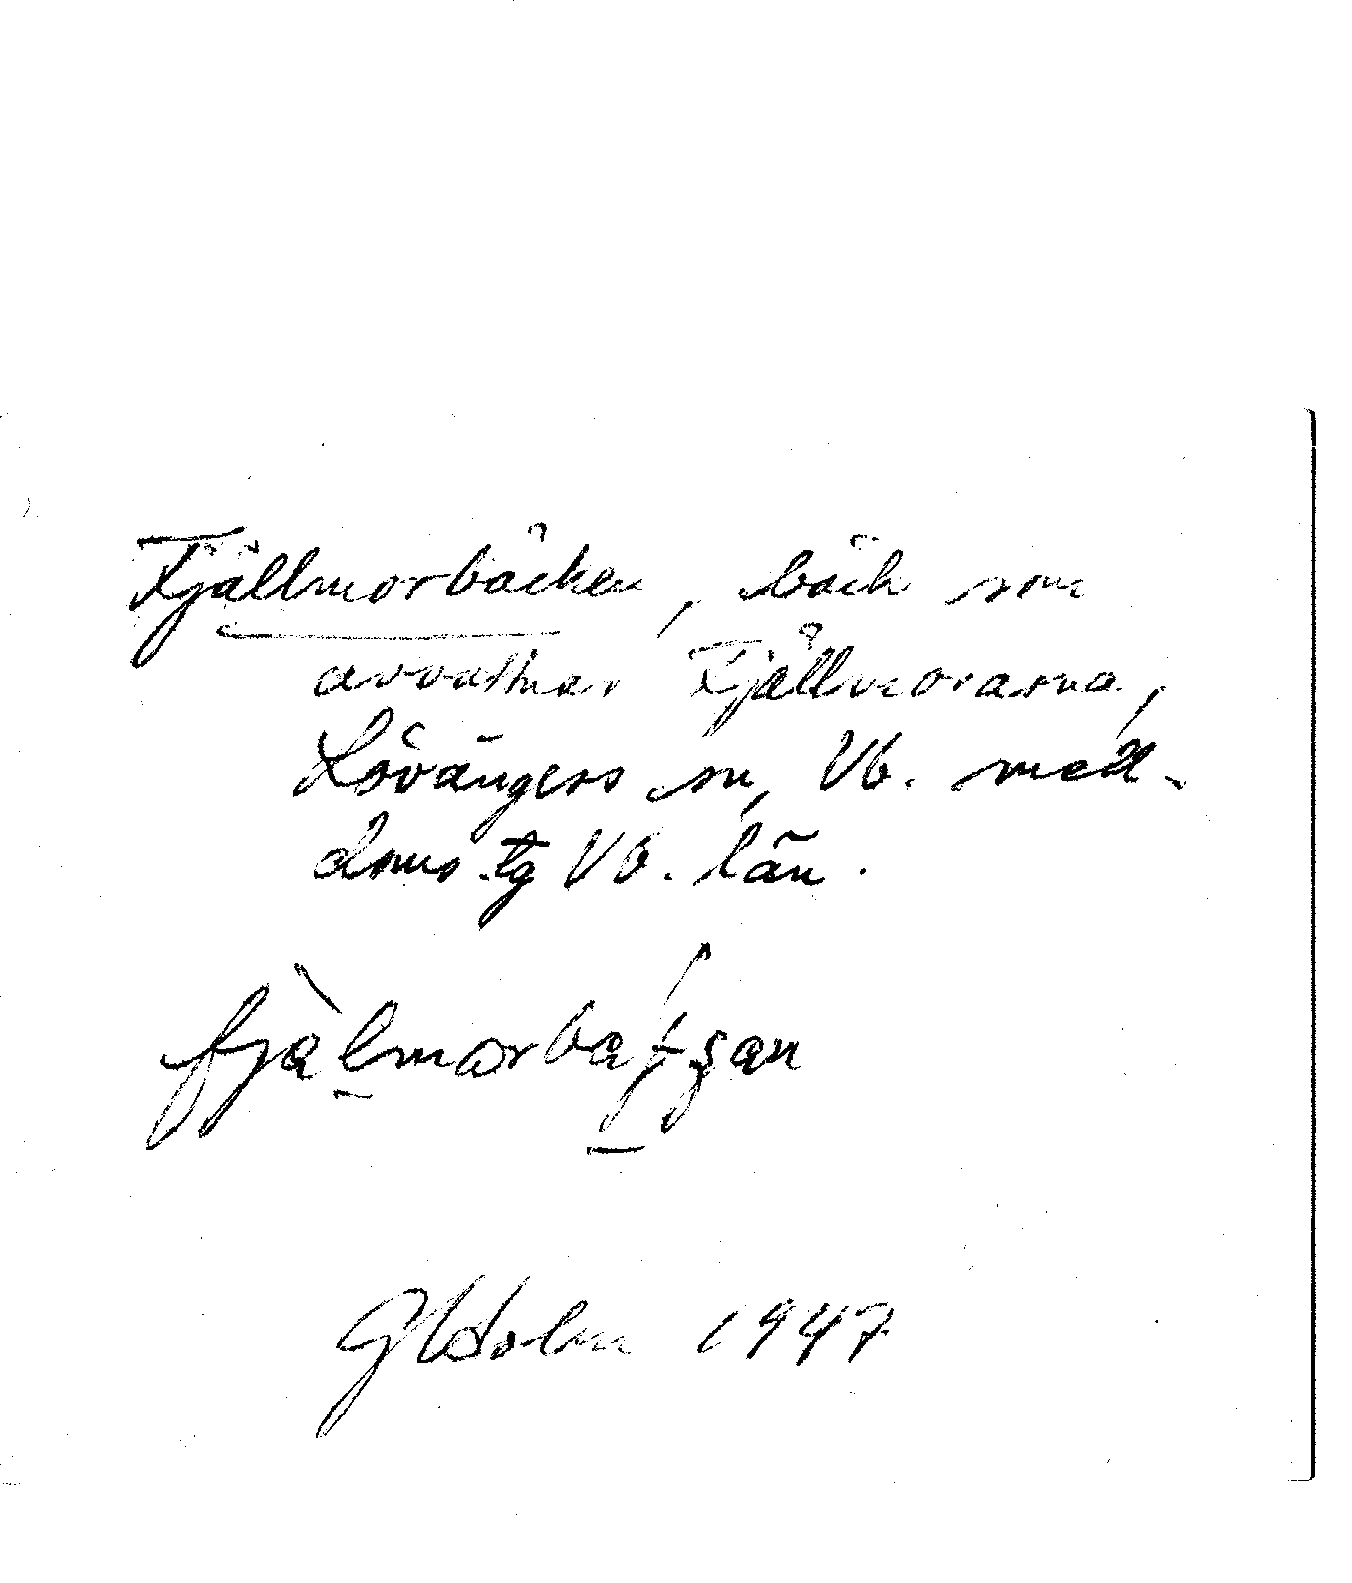 Fjällmorbäcken, bäck som
avvattnar Fjällmorarna,
Lövångers sn, Vb. med-
doms tg Vb. län.
G Holm 1947